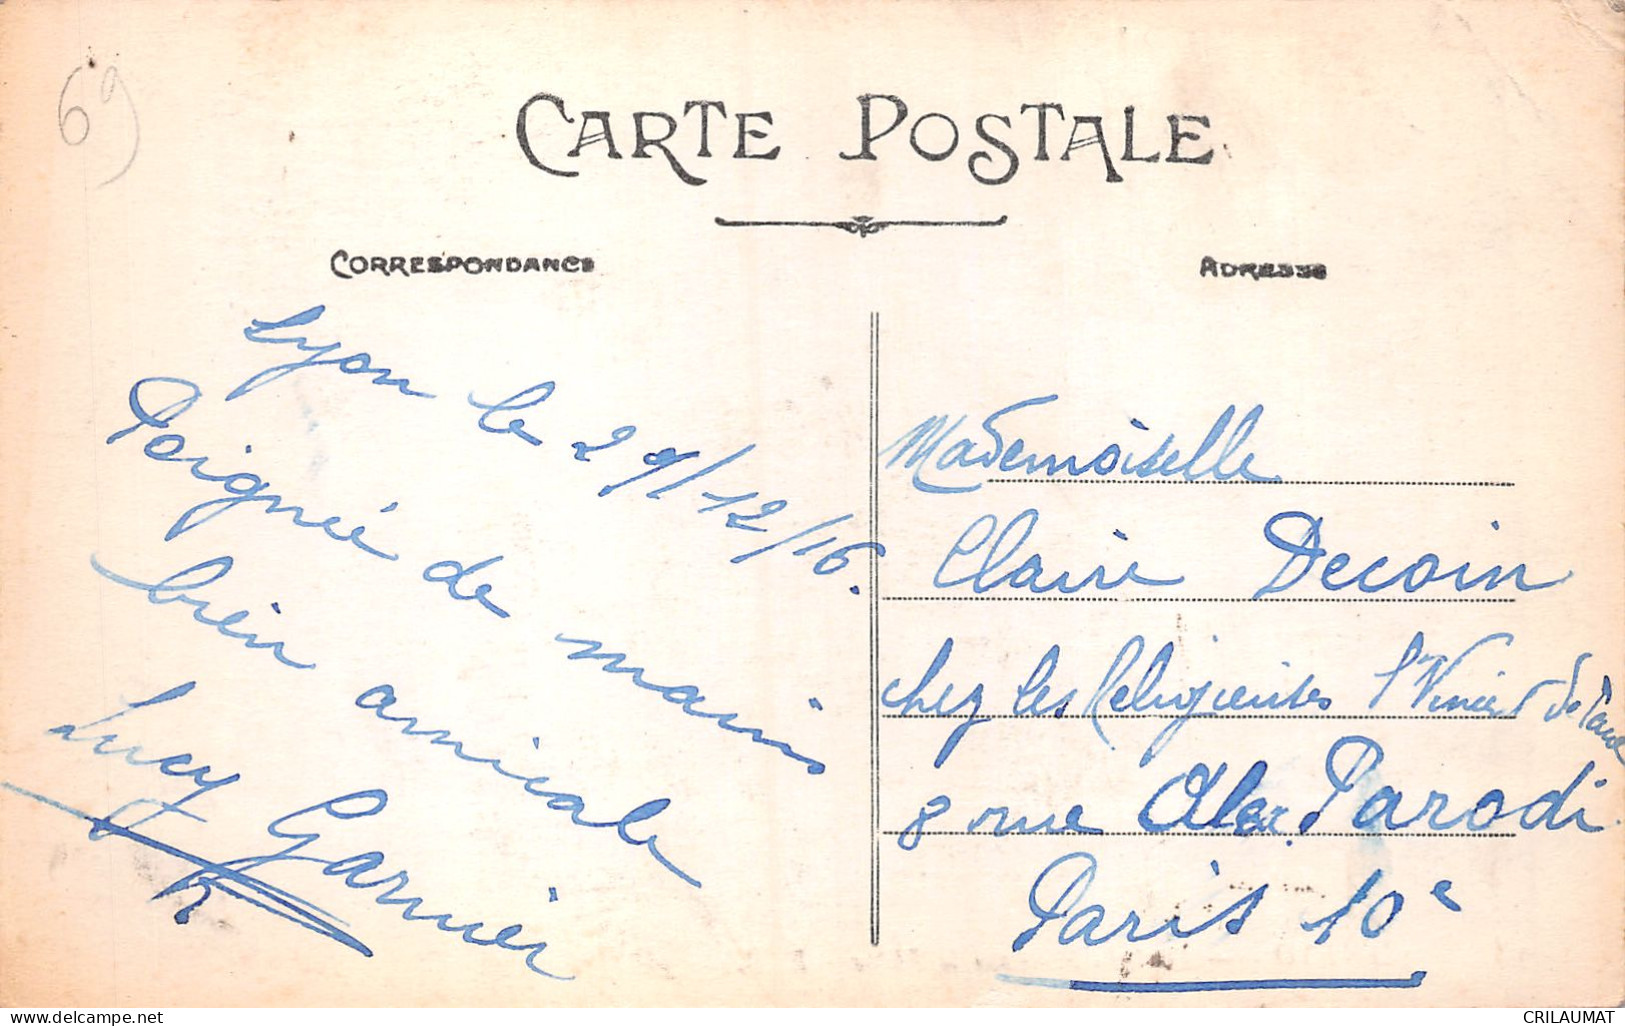 69
CARTE POSTALE
CORRESPONDANCE
ADRESSE
Lyon le 29/12/16.
Poignée de main
bien amicale
Lucy Garnier
Mademoiselle
Claire Decoin
chez les Religieuses St Vincent de Paul
8 rue Alex. Parodi
Paris 10e
CRILAUMAT